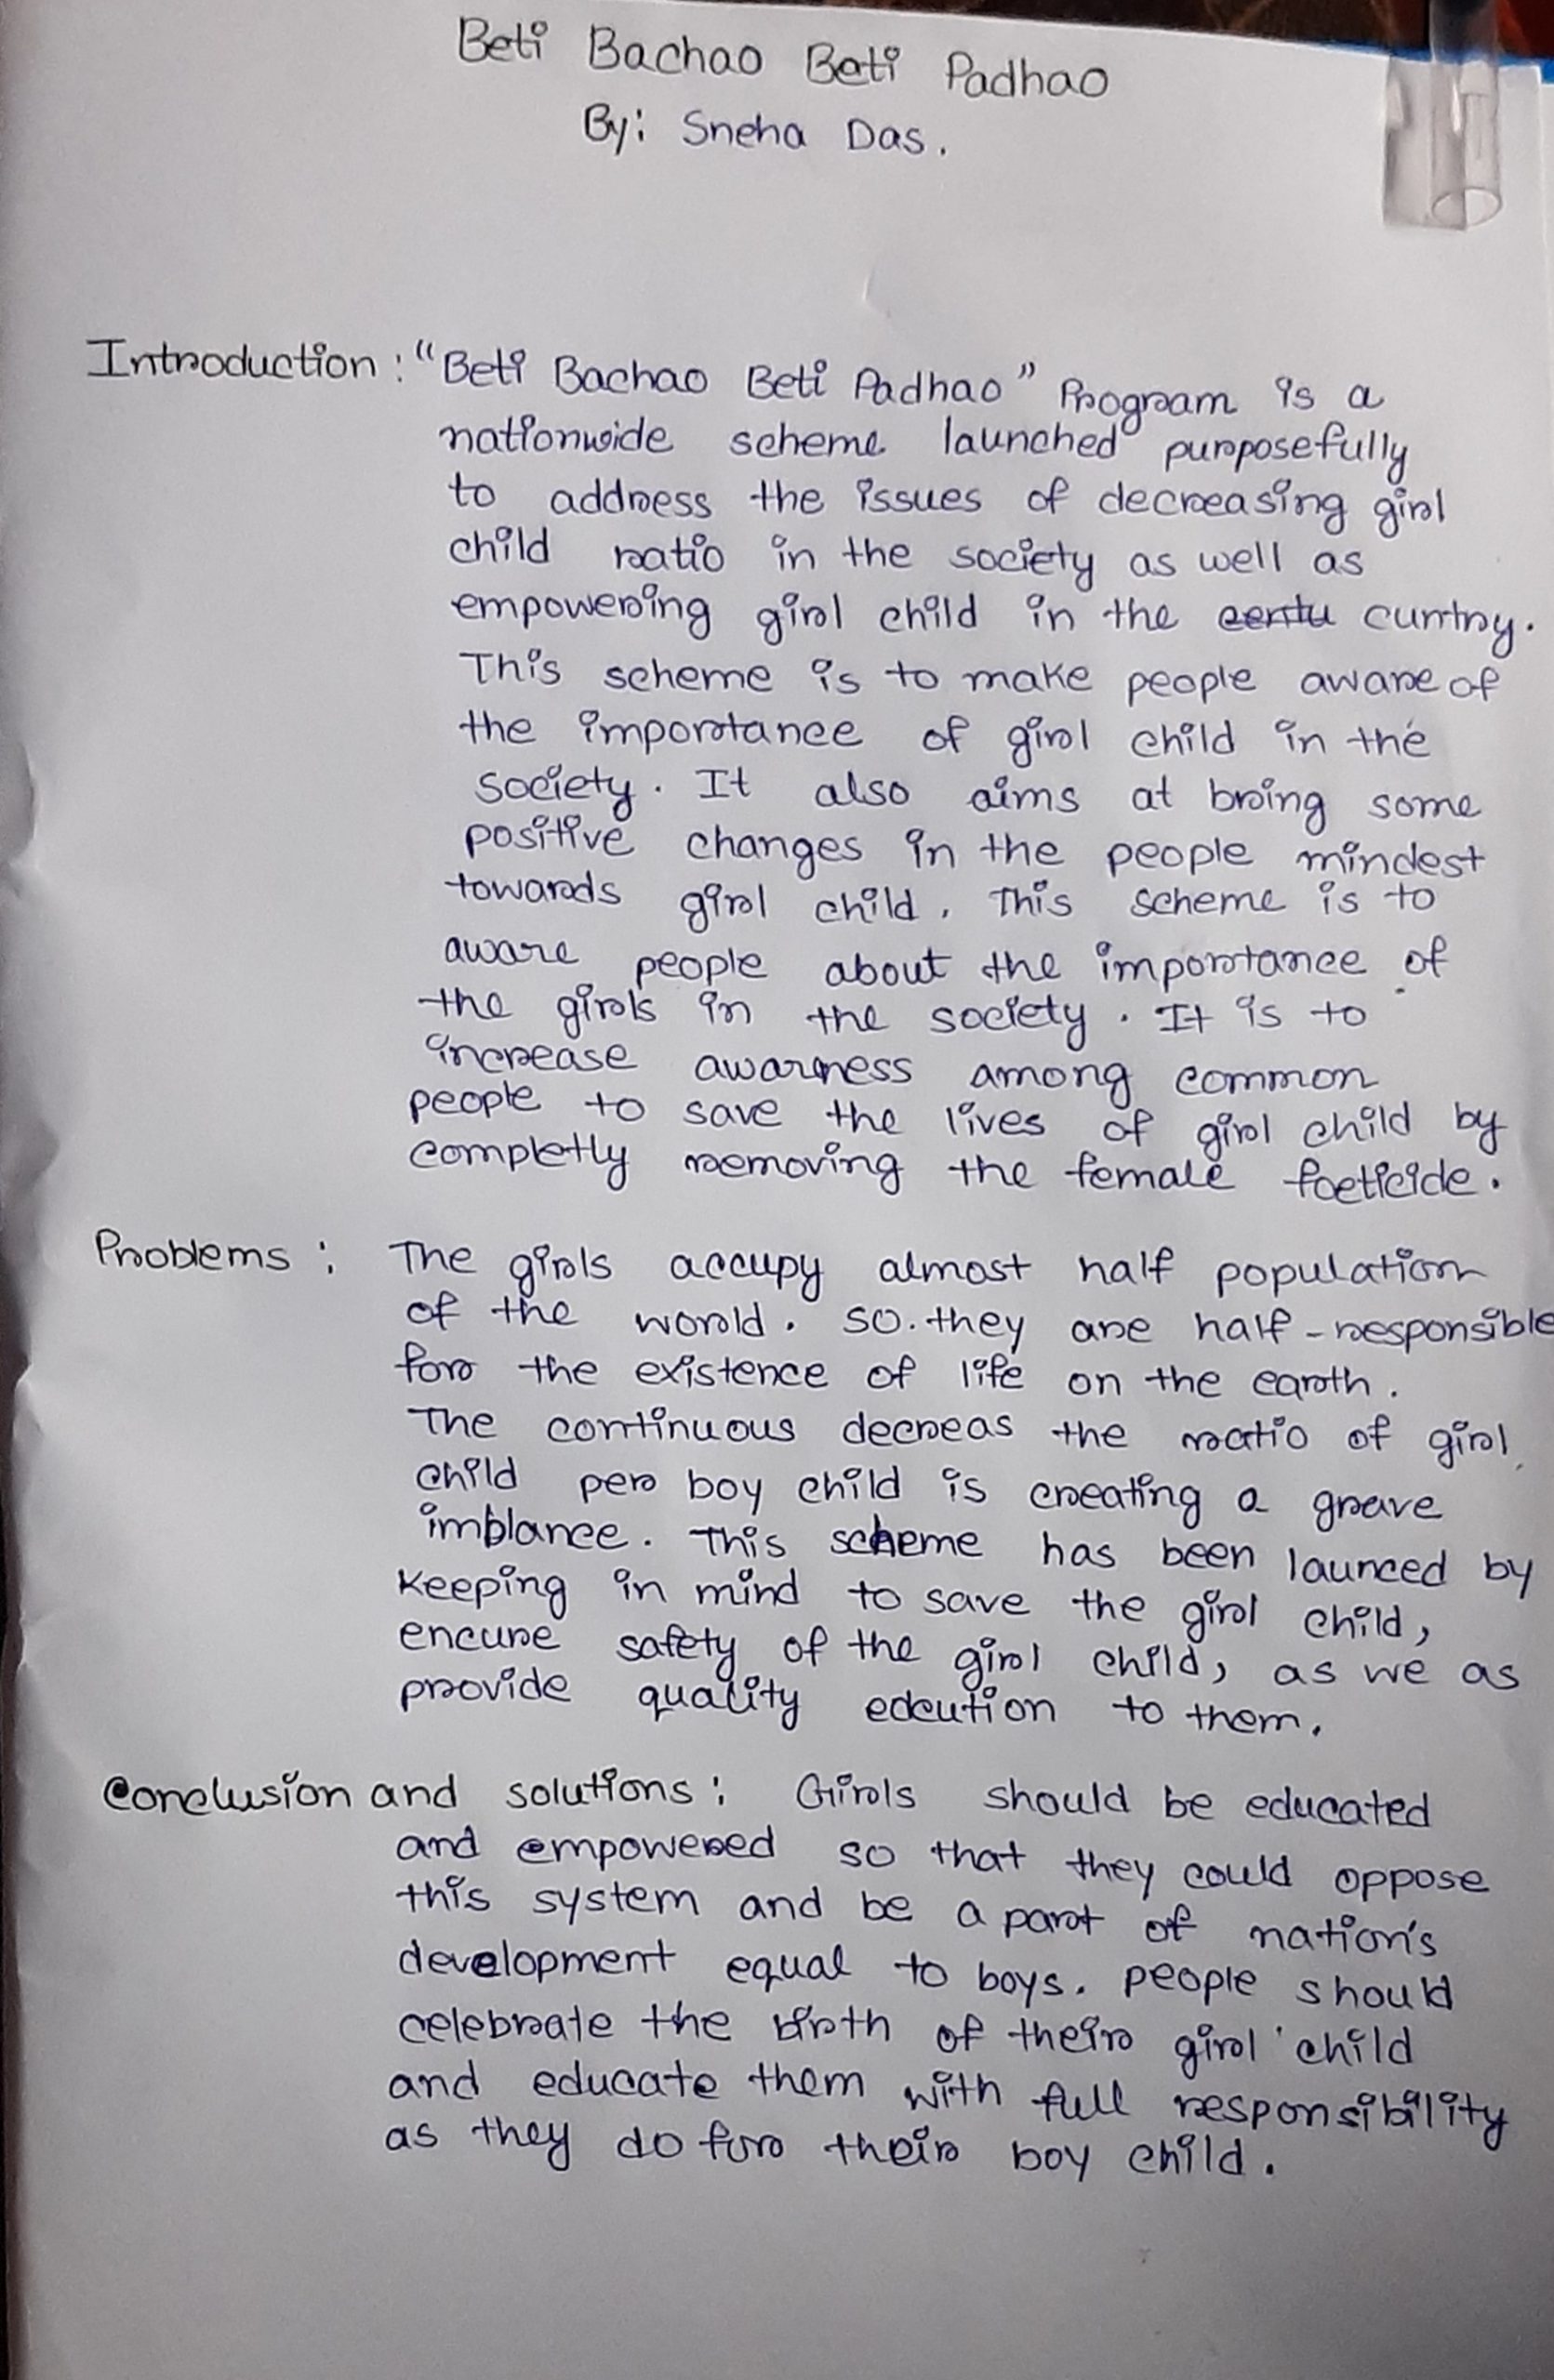 Beti Bachao Beti Padhao
By: Sneha Das.
Introduction: "Beti Bachao Beti Padhao" Program is a
nationwide scheme launched purposefully
to address the issues of decreasing girl
child ratio in the society as well as
empowering girl child in the curntry.
This scheme is to make people aware of
the importance of girl child in the
society. It also aims at bring some
positive changes in the people mindest
towards girl child. This scheme is to
aware people about the importance of
the girls in the society. It is to
increase awarness among common
people to save the lives of girl child by
completly removing the female foeticide.
Problems: The girls accupy almost half population
of the world. So. they are half-responsible
for the existence of life on the earth.
The continuous decreas the ratio of girl
child per boy child is creating a grave
imblance. This scheme has been launced by
keeping in mind to save the girl child,
encure safety of the girl child, as we as
provide quality edcution to them.
Conclusion and solutions: Girls should be educated
and empowered so that they could oppose
this system and be a part of nation's
development equal to boys. People should
celebrate the birth of their girl child
and educate them with full responsibility
as they do for their boy child.